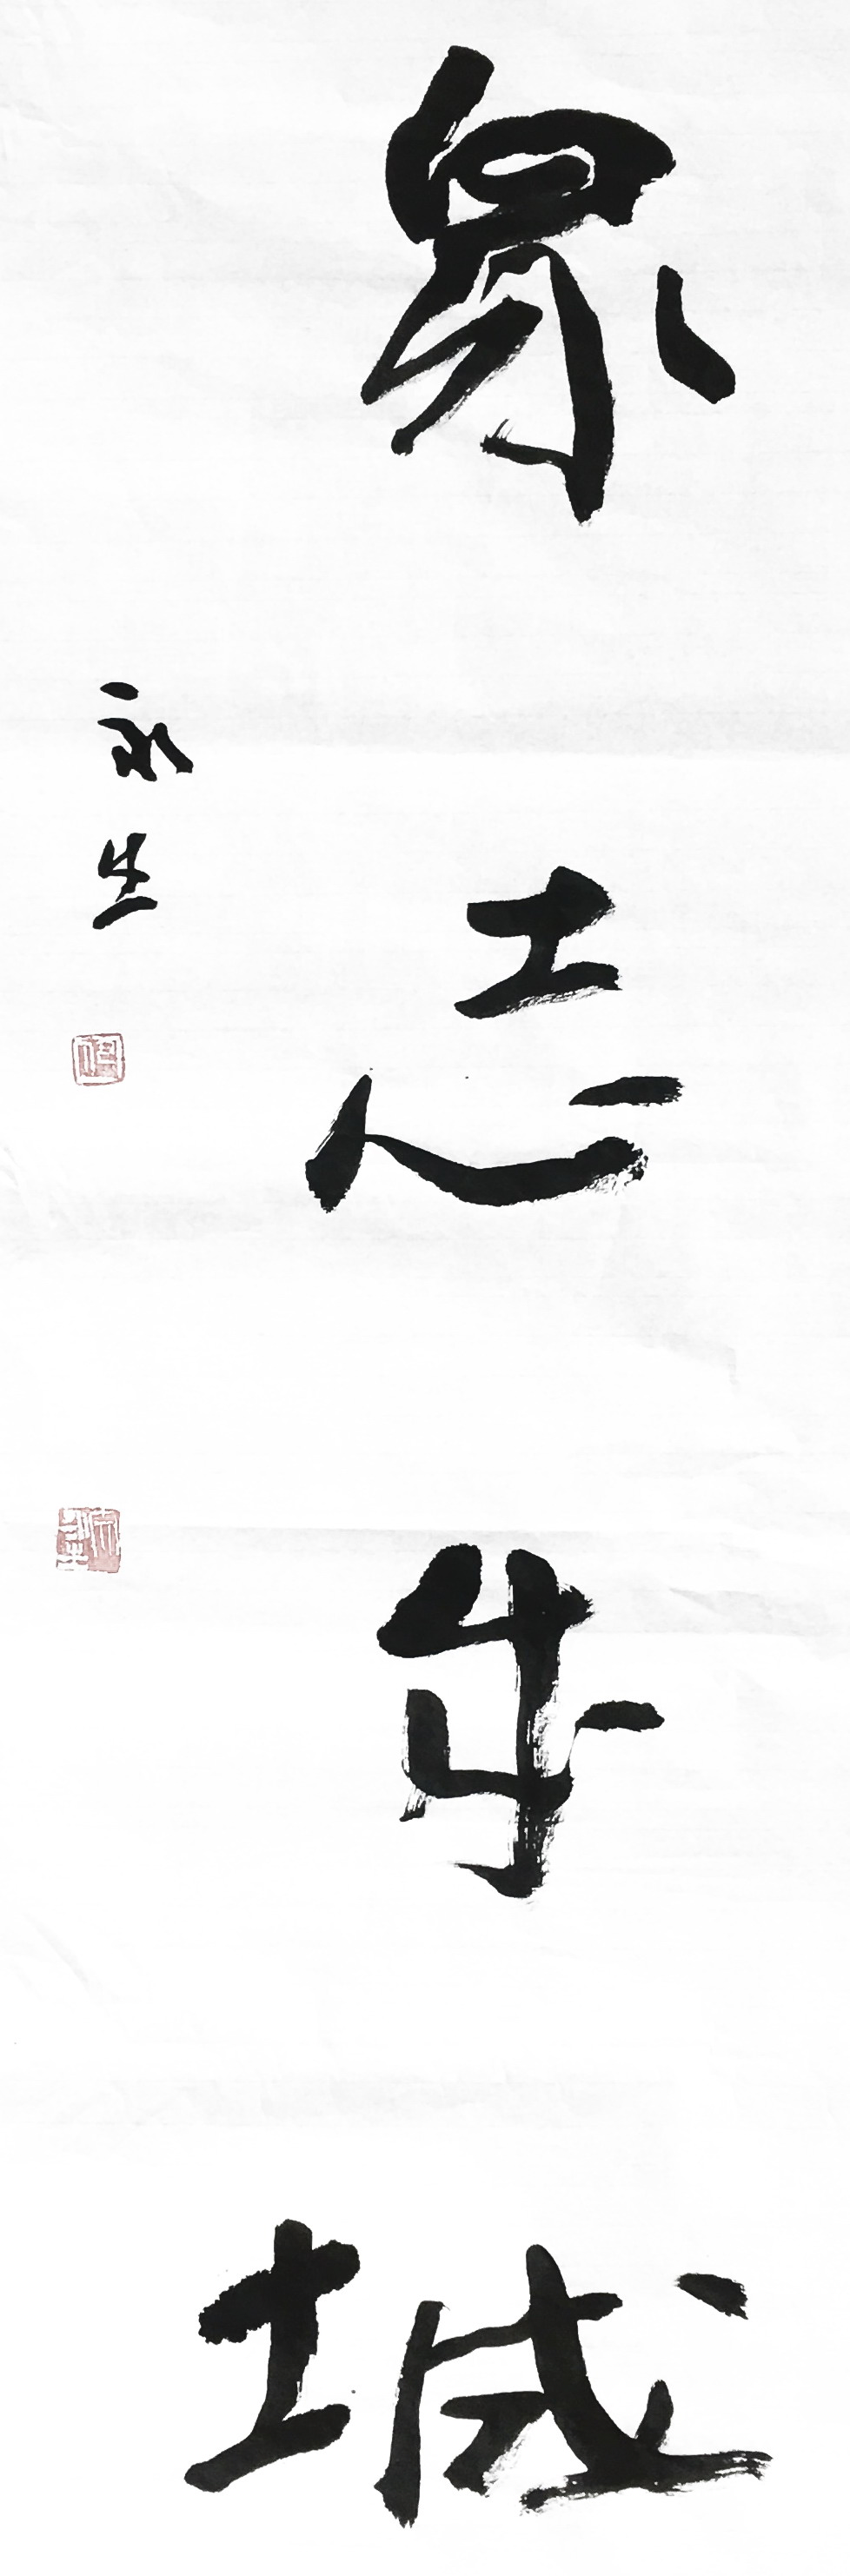 众志成城
永生